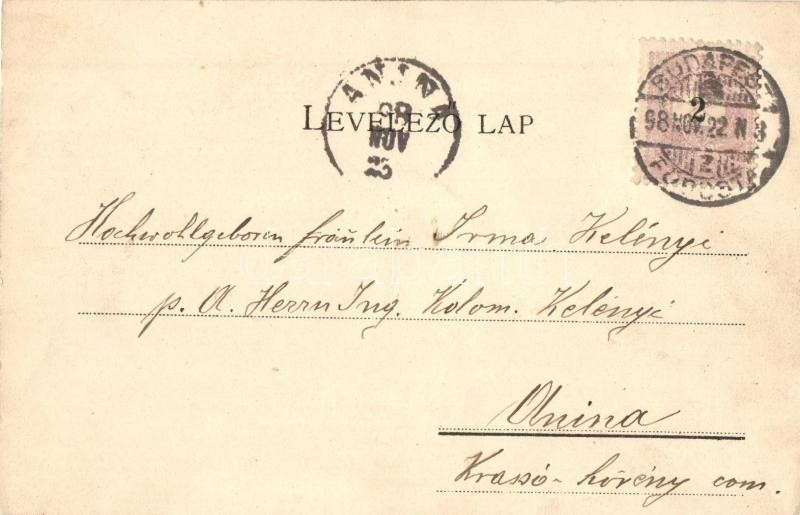 ANINA
98
NOV
23
BUDAPEST
2
98 NOV. 22 N 8
FŐPOSTA
LEVELEZŐ LAP
Hochwohlgeboren fräulein Irma Kelényi
p. A. Herrn Ing. Kolom. Kelényi
Anina
Krassó-Szörény com.